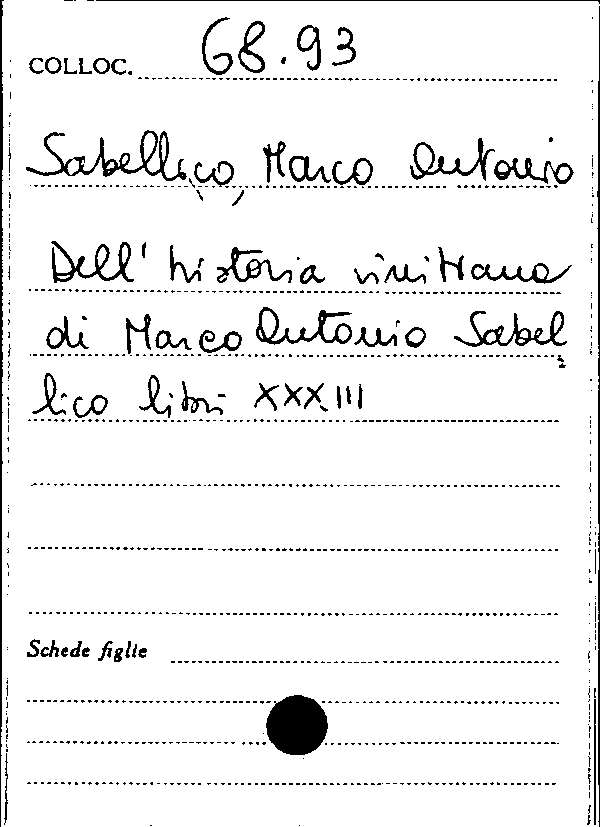 COLLOC. 68.93
Sabellico, Marco Antonio
Dell' historia vinitiana
di Marco Antonio Sabel
lico libri XXXIII
Schede figlie